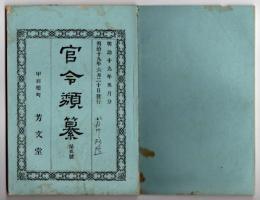 明治十九年五月分
明治十九年六月二十日發行
官令類纂
甲府櫻町
芳文堂